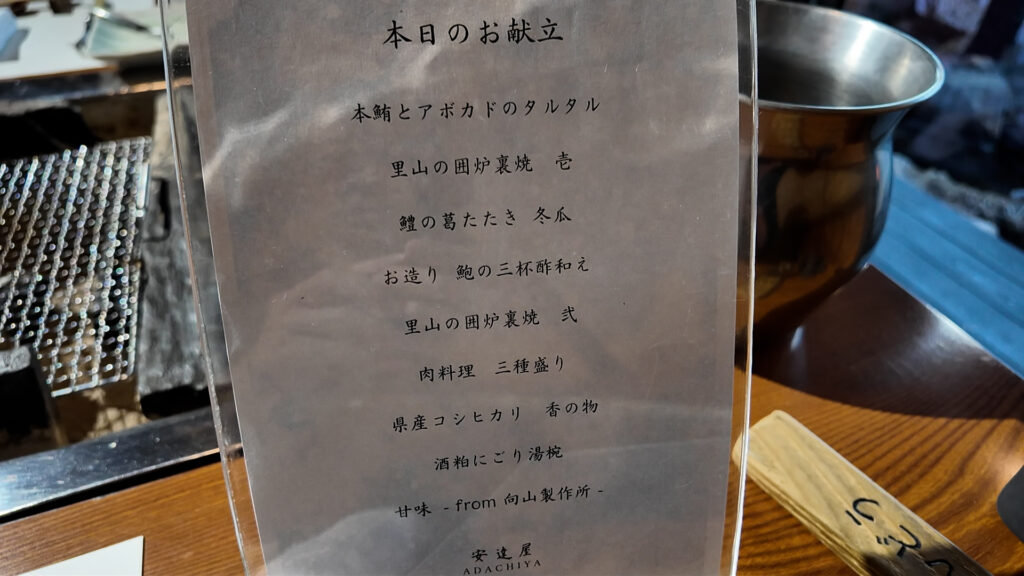 本日のお献立
本鮪とアボカドのタルタル
里山の囲炉裏焼 壱
鱧の葛たたき 冬瓜
お造り 鮑の三杯酢和え
里山の囲炉裏焼 弐
肉料理 三種盛り
県産コシヒカリ 香の物
酒粕にごり湯椀
甘味 - from 向山製作所 -
安達屋
ADACHIYA